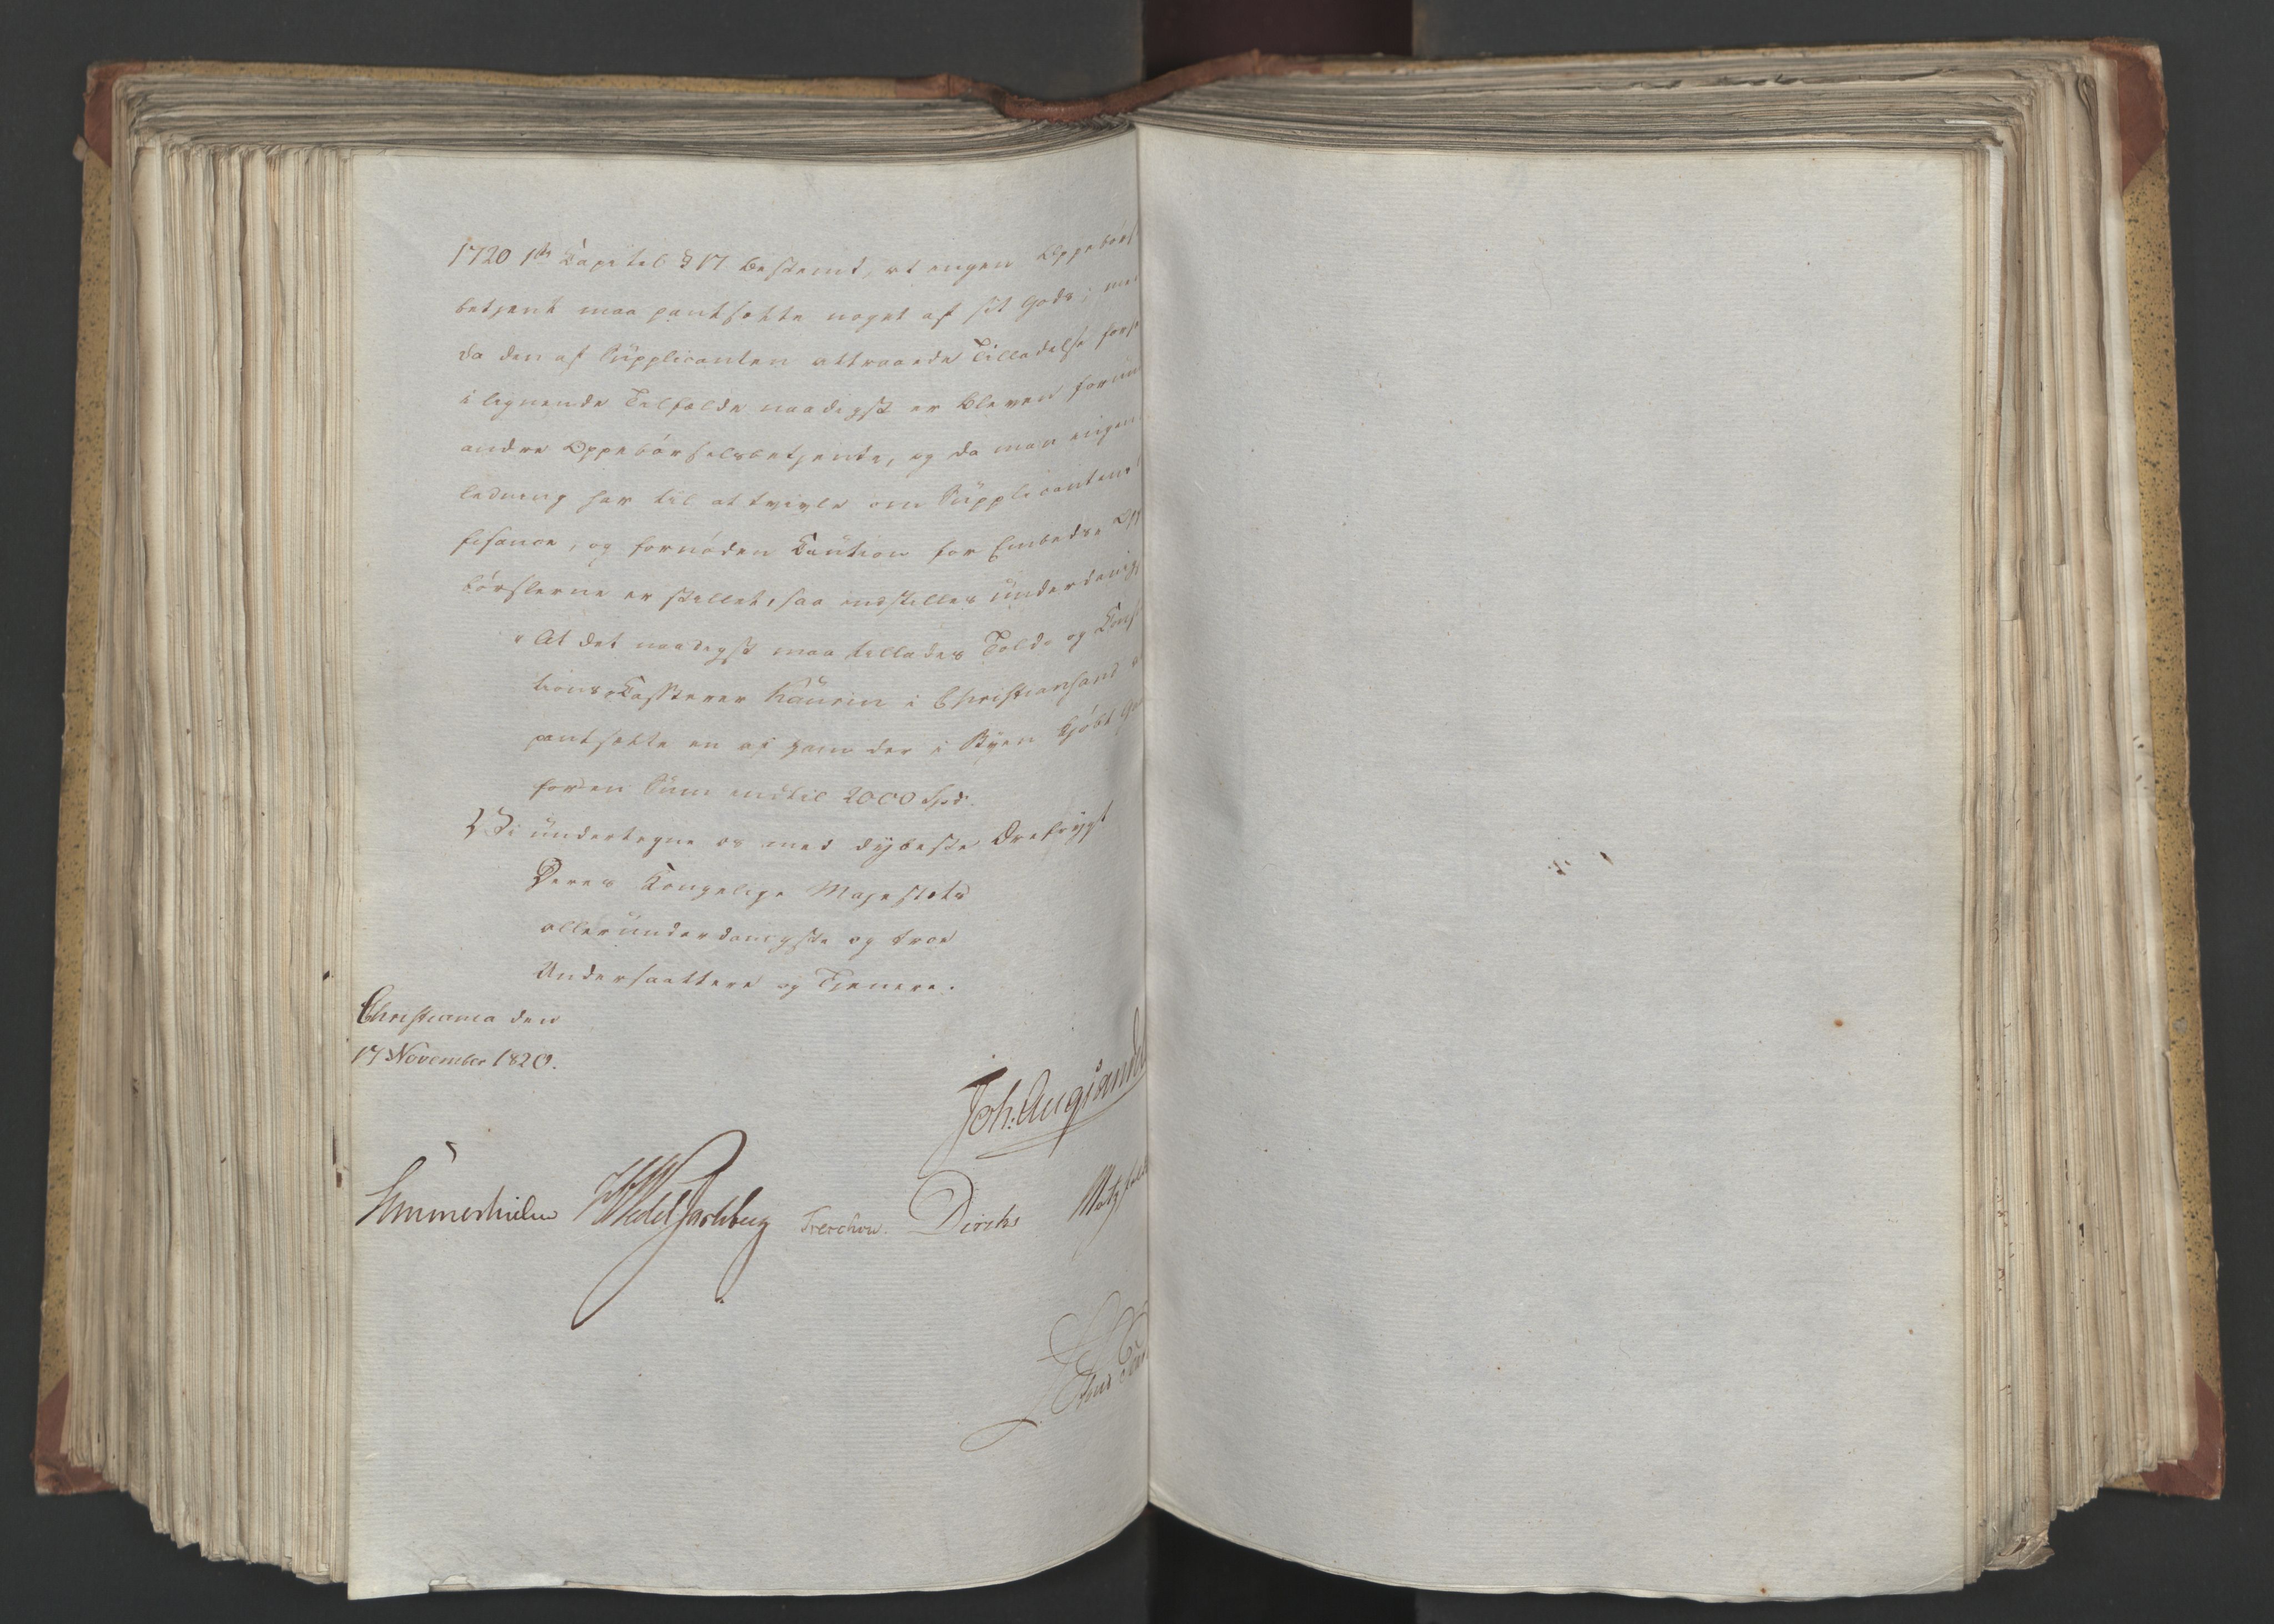 1720 1ste Capitel § 17 bestemt, at ingen Oppebørs
betjent maa pantsætte noget af sit Gods; men
da den af Supplicanten attraaede Tilladelse før
i lignende Tilfælde naadigst er bleven forund
andre Oppebørselsbetjente, og da man ingen
ledning har til at tvivle om Supplicantens
fisance, og fornøden Caution for Embedets Opp
børslerne er stillet, saa indstilles underdanigst
"At det naadigst maa tillades Told- og Cons
tions-Casserer Kaurin i Christiansand at
pantsætte en af ham der i Byen kjøbt Gaa
for en Sum indtil 2000 Spd.
Vi undertegne os med dybeste Ærefrygt
Deres Kongelige Majestæts
allerunderdanigste og troe
Undersaattere og Tjenere.
Christiania den
17 November 1820.
Joh: Aug: Sande
Sommerhielm HWedel Jarlsberg Treschow. Diriks Motzfeldt